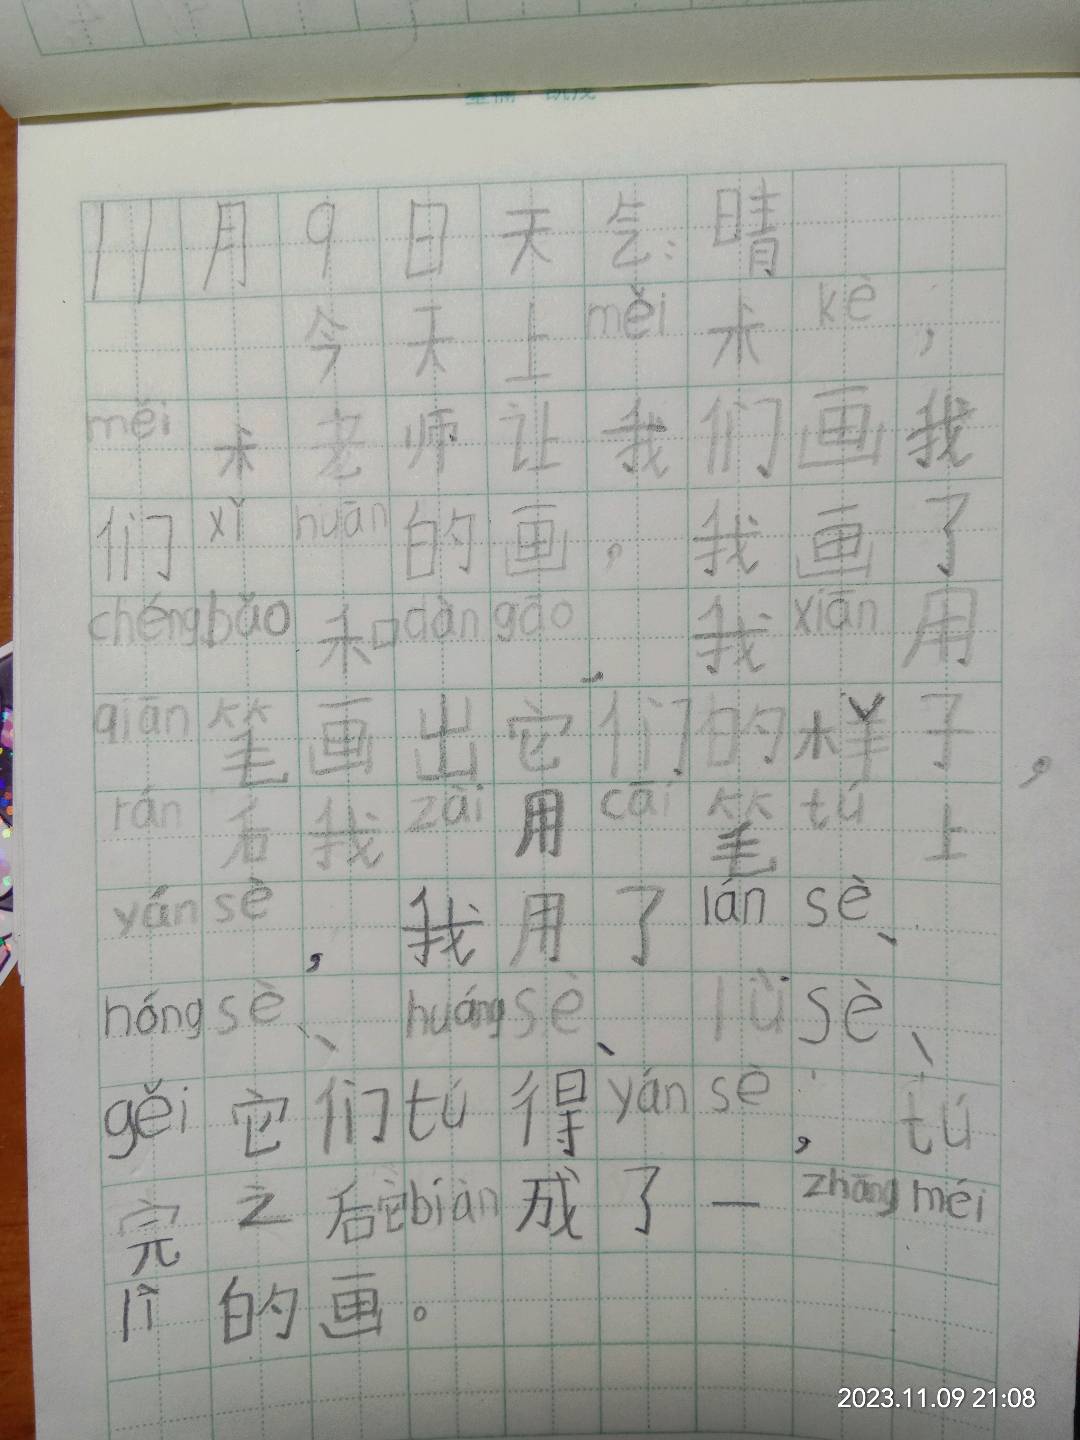 11月9日天气:晴
今天上měi术kè，
měi术老师让我们画我
们xǐ huān的画。我画了
chéng bǎo和dàn gāo，我xiān用
qiān笔画出它们的样子，
rán后我zài用cǎi笔tú上
yán sè，我用了lán sè、
hóng sè、huáng sè、lǜ sè、
gěi它们tú得yán sè，tú
完之后它biàn成了一zhāng méi
lì的画。
2023.11.09 21:08